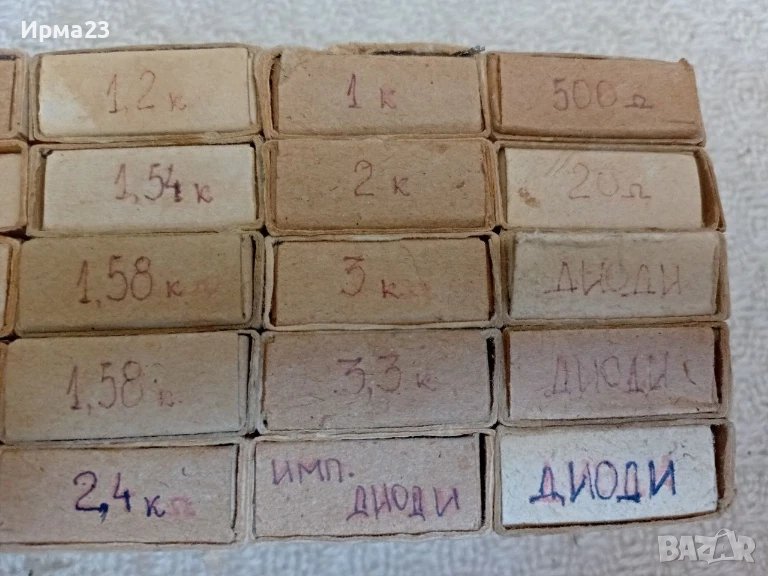 Ирма23
1,2 к
1 к
500 Ω
1,54 к
2 к
20 Ω
1,58 к
3 к
ДИОДИ
1,58 к
3,3 к
ДИОДИ
2,4 к
ИМП.
ДИОДИ
ДИОДИ
BAZAR